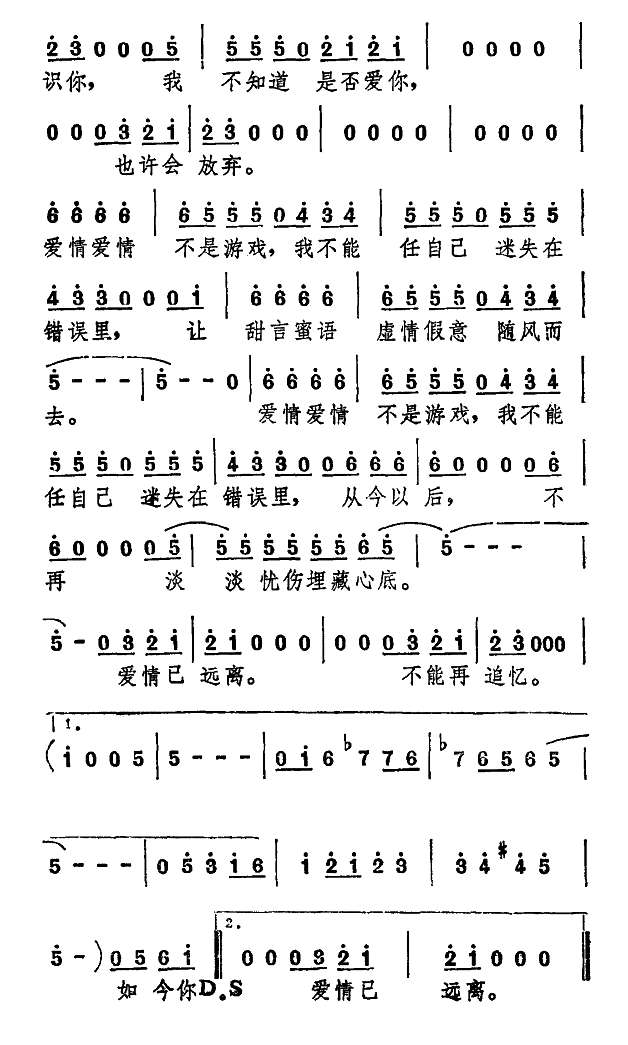 2̇ 3̇ 0 0 0 5̇ | 5̇ 5̇ 5̇ 0 2̇ 1̇ 2̇ 1̇ | 0 0 0 0
识你， 我 不知道 是否爱你，
0 0 0 3̇ 2̇ 1̇ | 2̇ 3̇ 0 0 0 | 0 0 0 0 | 0 0 0 0 |
也许会 放弃。
6̇ 6̇ 6̇ 6̇ | 6̇ 5̇ 5̇ 5̇ 0 4̇ 3̇ 4̇ | 5̇ 5̇ 5̇ 0 5̇ 5̇ 5̇ |
爱情爱情 不是游戏，我不能 任自己 迷失在
4̇ 3̇ 3̇ 0 0 0 0 1̇ | 6̇ 6̇ 6̇ 6̇ | 6̇ 5̇ 5̇ 5̇ 0 4̇ 3̇ 4̇ |
错误里， 让 甜言蜜语 虚情假意 随风而
5̇ - - - | 5̇ - - 0 | 6̇ 6̇ 6̇ 6̇ | 6̇ 5̇ 5̇ 5̇ 0 4̇ 3̇ 4̇ |
去。 爱情爱情 不是游戏，我不能
5̇ 5̇ 5̇ 0 5̇ 5̇ 5̇ | 4̇ 3̇ 3̇ 0 0 6̇ 6̇ 6̇ | 6̇ 0 0 0 0 6̇ |
任自己 迷失在 错误里， 从今以 后， 不
6̇ 0 0 0 0 5̇ | 5̇ 5̇ 5̇ 5̇ 5̇ 5̇ 6̇ 5̇ | 5̇ - - - |
再 淡 淡 忧伤埋藏心底。
5̇ - 0 3̇ 2̇ 1̇ | 2̇ 1̇ 0 0 0 | 0 0 0 0 | 0 0 0 3̇ 2̇ 1̇ | 2̇ 3̇ 0 0 0 |
爱情已 远离。 不能再 追忆。
1.
(1̇ 0 0 5 | 5 - - - | 0 1̇ 6 ♭7 7 6 | ♭7 6 5 6 5 |
5 - - - | 0 5̇ 3̇ 1̇ 6 | 1̇ 2̇ 1̇ 2̇ 3̇ | 3̇ 4̇ #4̇ 5̇ |
2.
5̇ - ) 0 5 6 1̇ ‖ 0 0 0 3̇ 2̇ 1̇ | 2̇ 1̇ 0 0 0 ‖
如 今你 D.S 爱情已 远离。